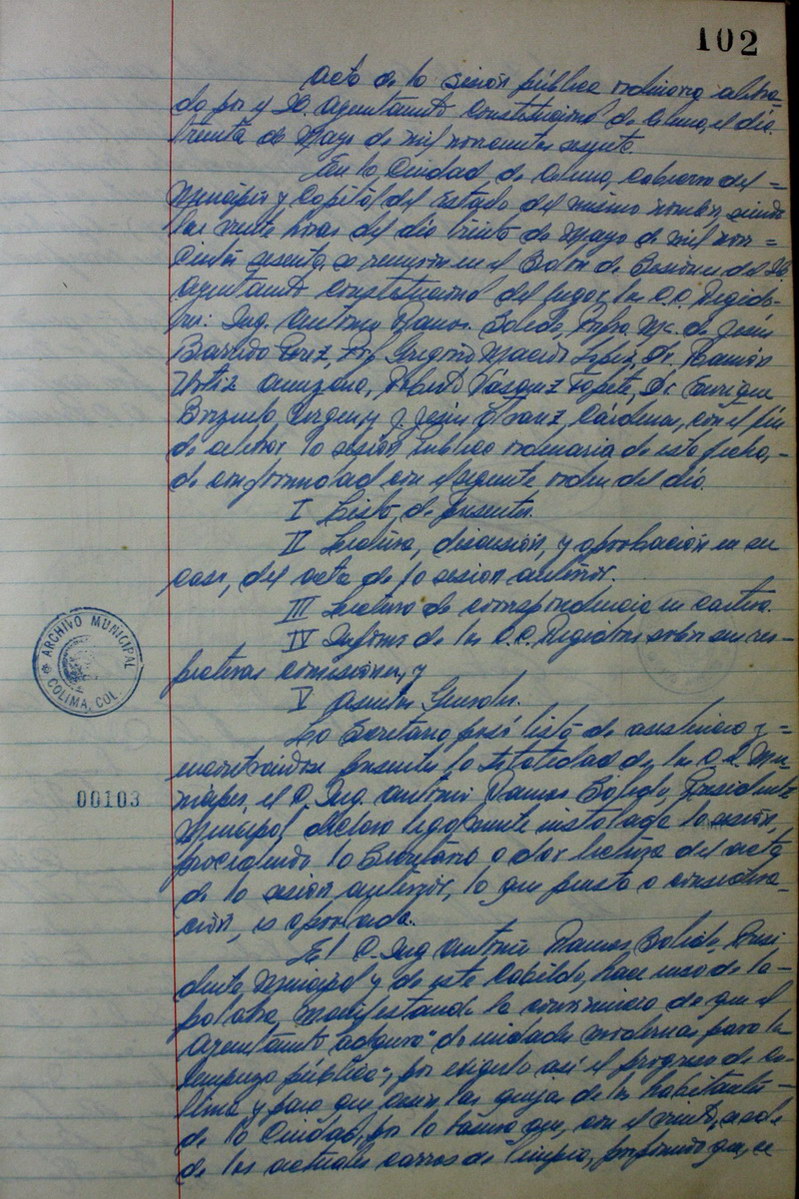 102
Acta de la sesión pública ordinaria celebra-
da por el H. Ayuntamiento Constitucional de Colima, el día
treinta de Mayo de mil novecientos sesenta.
En la Ciudad de Colima, Cabecera del =
Municipio y Capital del Estado del mismo nombre, siendo
las veinte horas del día treinta de Mayo de mil nove =
cientos sesenta, se reunieron en el Salón de Sesiones del H.
Ayuntamiento Constitucional del lugar, los C.C. Regido-
res: Ing. Antonio Ramos Salido, Ma. de Jesús
Barreda Pérez, Prof. Gregorio Macedo López, Dr. Ramón
Ortiz Roberto Vásquez Dr. Enrique
Brizuela y J. Jesús Cárdenas, con el fin
de celebrar la sesión pública ordinaria de esta fecha, -
de conformidad con el siguiente orden del día.
I Lista de Presentes.
II Lectura, discusión, y aprobación en su
caso, del acta de la sesión anterior.
III Lectura de correspondencia en cartera.
IV Informe de los C.C. Regidores sobre sus res-
pectivas comisiones, y
V Asuntos Generales.
La Secretaría pasó lista de asistencia y =
encontrándose presente la totalidad de los C.C. Mu-
nícipes, el C. Ing. Antonio Ramos Salido, Presidente
Municipal declaró legalmente instalada la sesión,
procediendo la Secretaría a dar lectura del acta
de la sesión anterior, la que puesta a considera-
ción, es aprobada.
El C. Ing. Antonio Ramos Salido, Presi
dente Municipal y de este Cabildo, hace uso de la -
palabra, manifestando la conveniencia de que el
Ayuntamiento adquiera "de unidades modernas para la
limpieza pública", por exigirlo así el progreso de Co-
lima y para que cesen las quejas de los habitantes -
de la Ciudad, por la basura que, con el viento, sale
de los actuales carros de limpia, que, se
ARCHIVO MUNICIPAL
COLIMA, COL.
00103